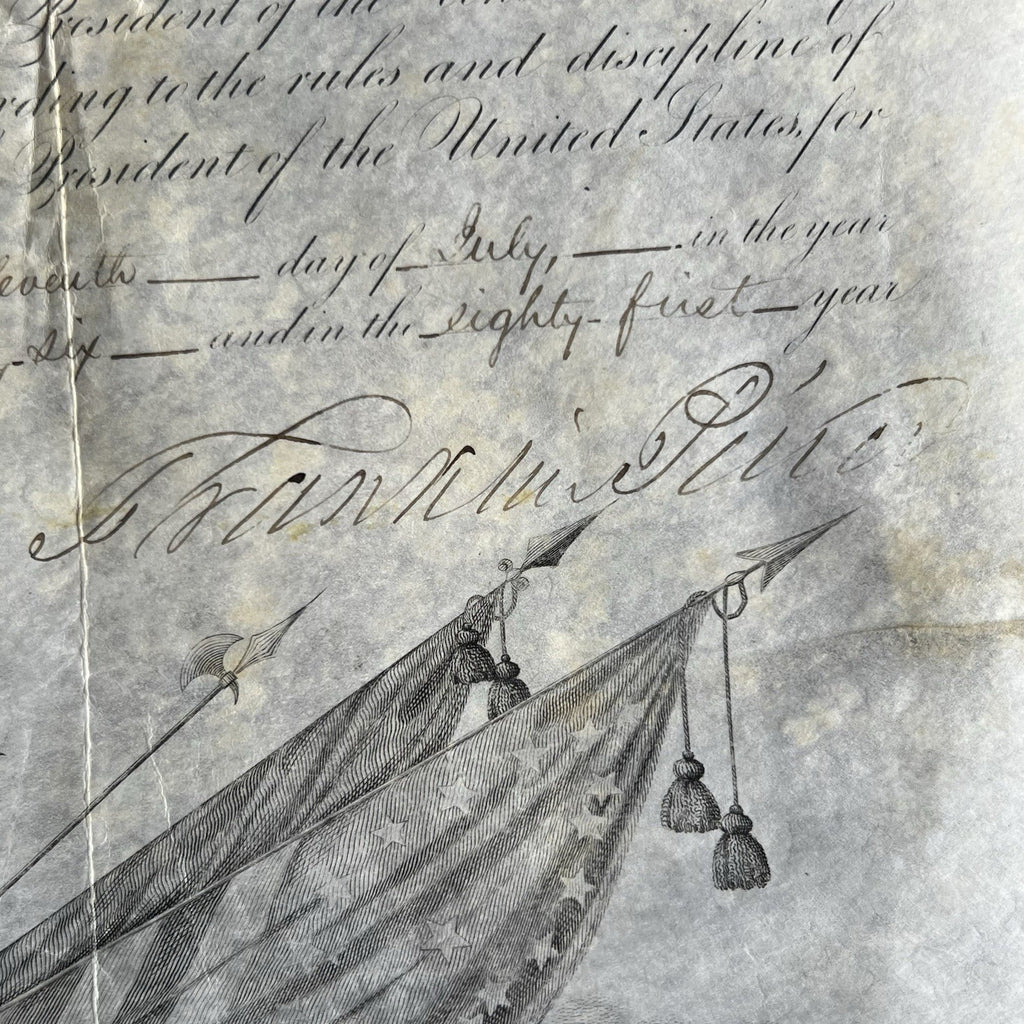 President of the
rding to the rules and discipline of
President of the United States, for
eventh day of July, in the year
-six and in the eighty-first year
Franklin Pierce